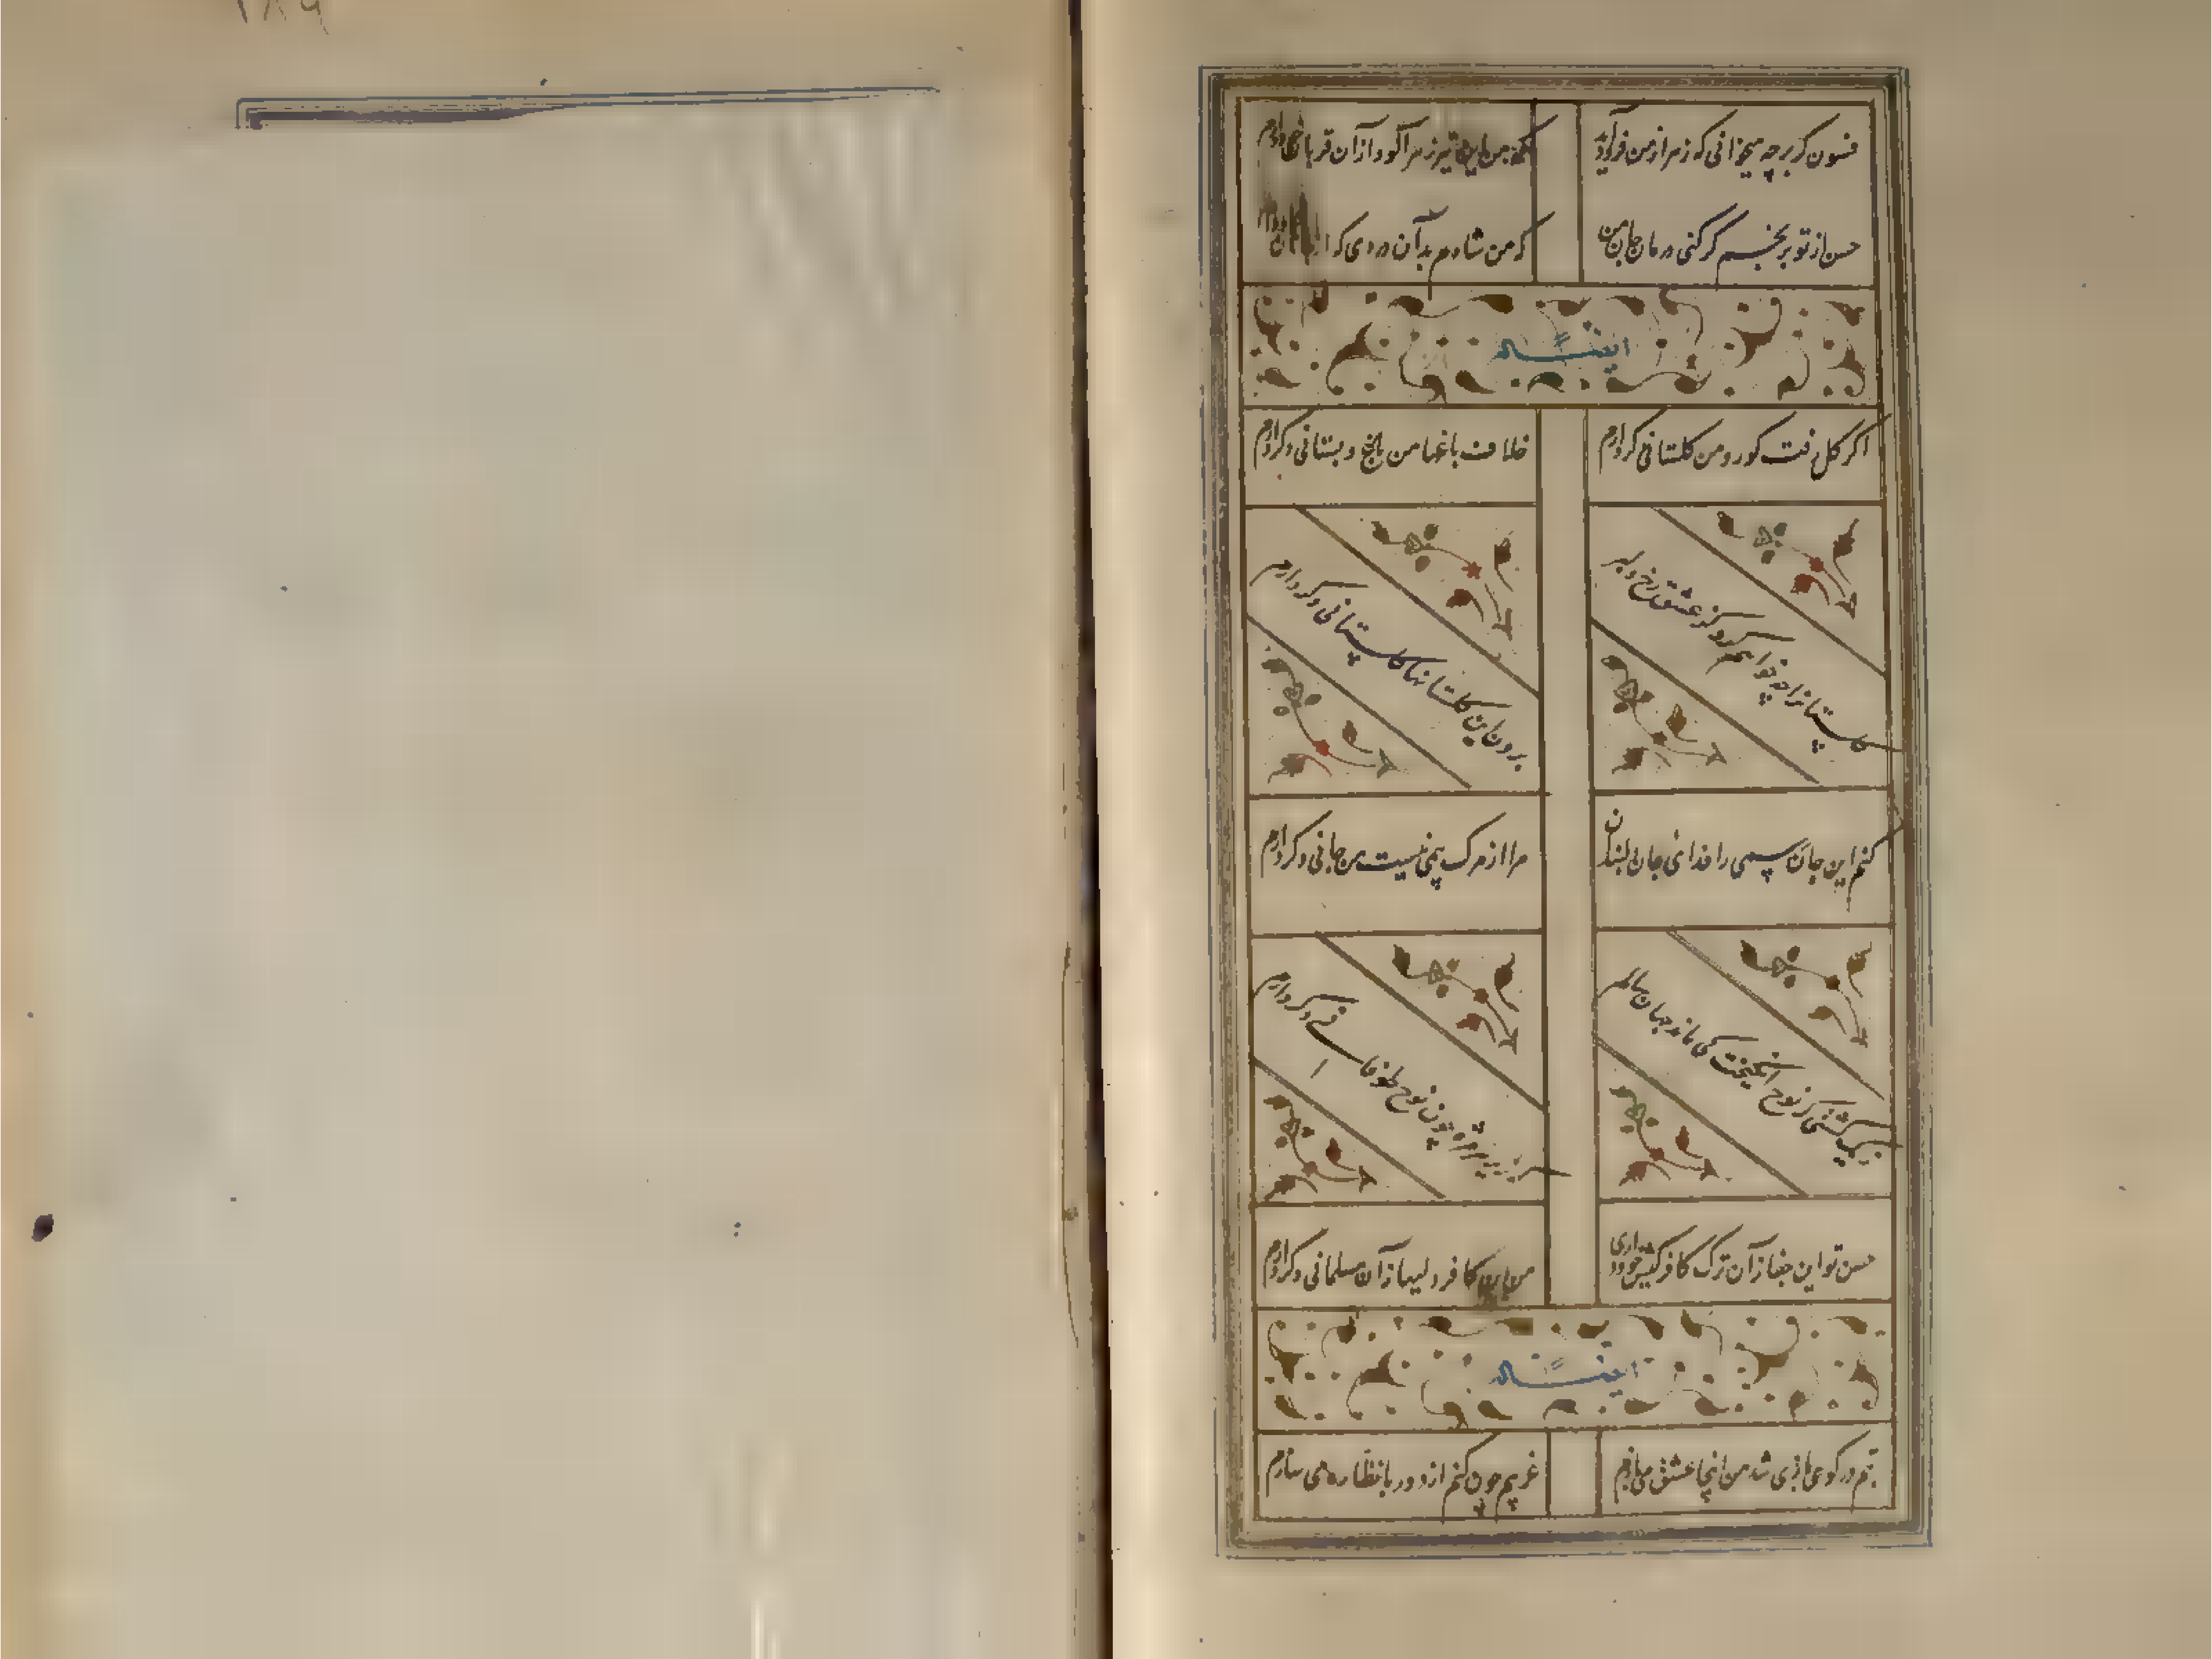 ۱۸۹
فسون گر بر چه میخوانی که زهر از من فرو آید
که من این تیر زهرآلود از آن قربان دارم
حسن از تو بر نخسم گر کنی درمان جان من
که من شادم بدآن دردی که از
ایضاً له
اگر گل رفت کو رو من گلستانی دگر دارم
خلاف باغها من باغ و بستانی دگر دارم
گلستانرا چه خواهم کرد کز عشق رخ دلبر
برون این گلستانها گلستانی دگر دارم
کنم این جان رسمی را فدای جان
مرا از مرگ بیمی نیست من جانی دگر دارم
کشتی کز نوح انگیخت کی ماند جهان سالم
هر مژه چون نوح طوفانی دگر دارم
حسن تو این جفا ز آن ترک کافر کیش خود داری
من این کافر دلیها ز آن مسلمانی دگر دارم
ایضاً له
بتم در کوی بازی شد من اینجا عشق میبازم
غریبم چون کنم از دور با نظاره می سازم